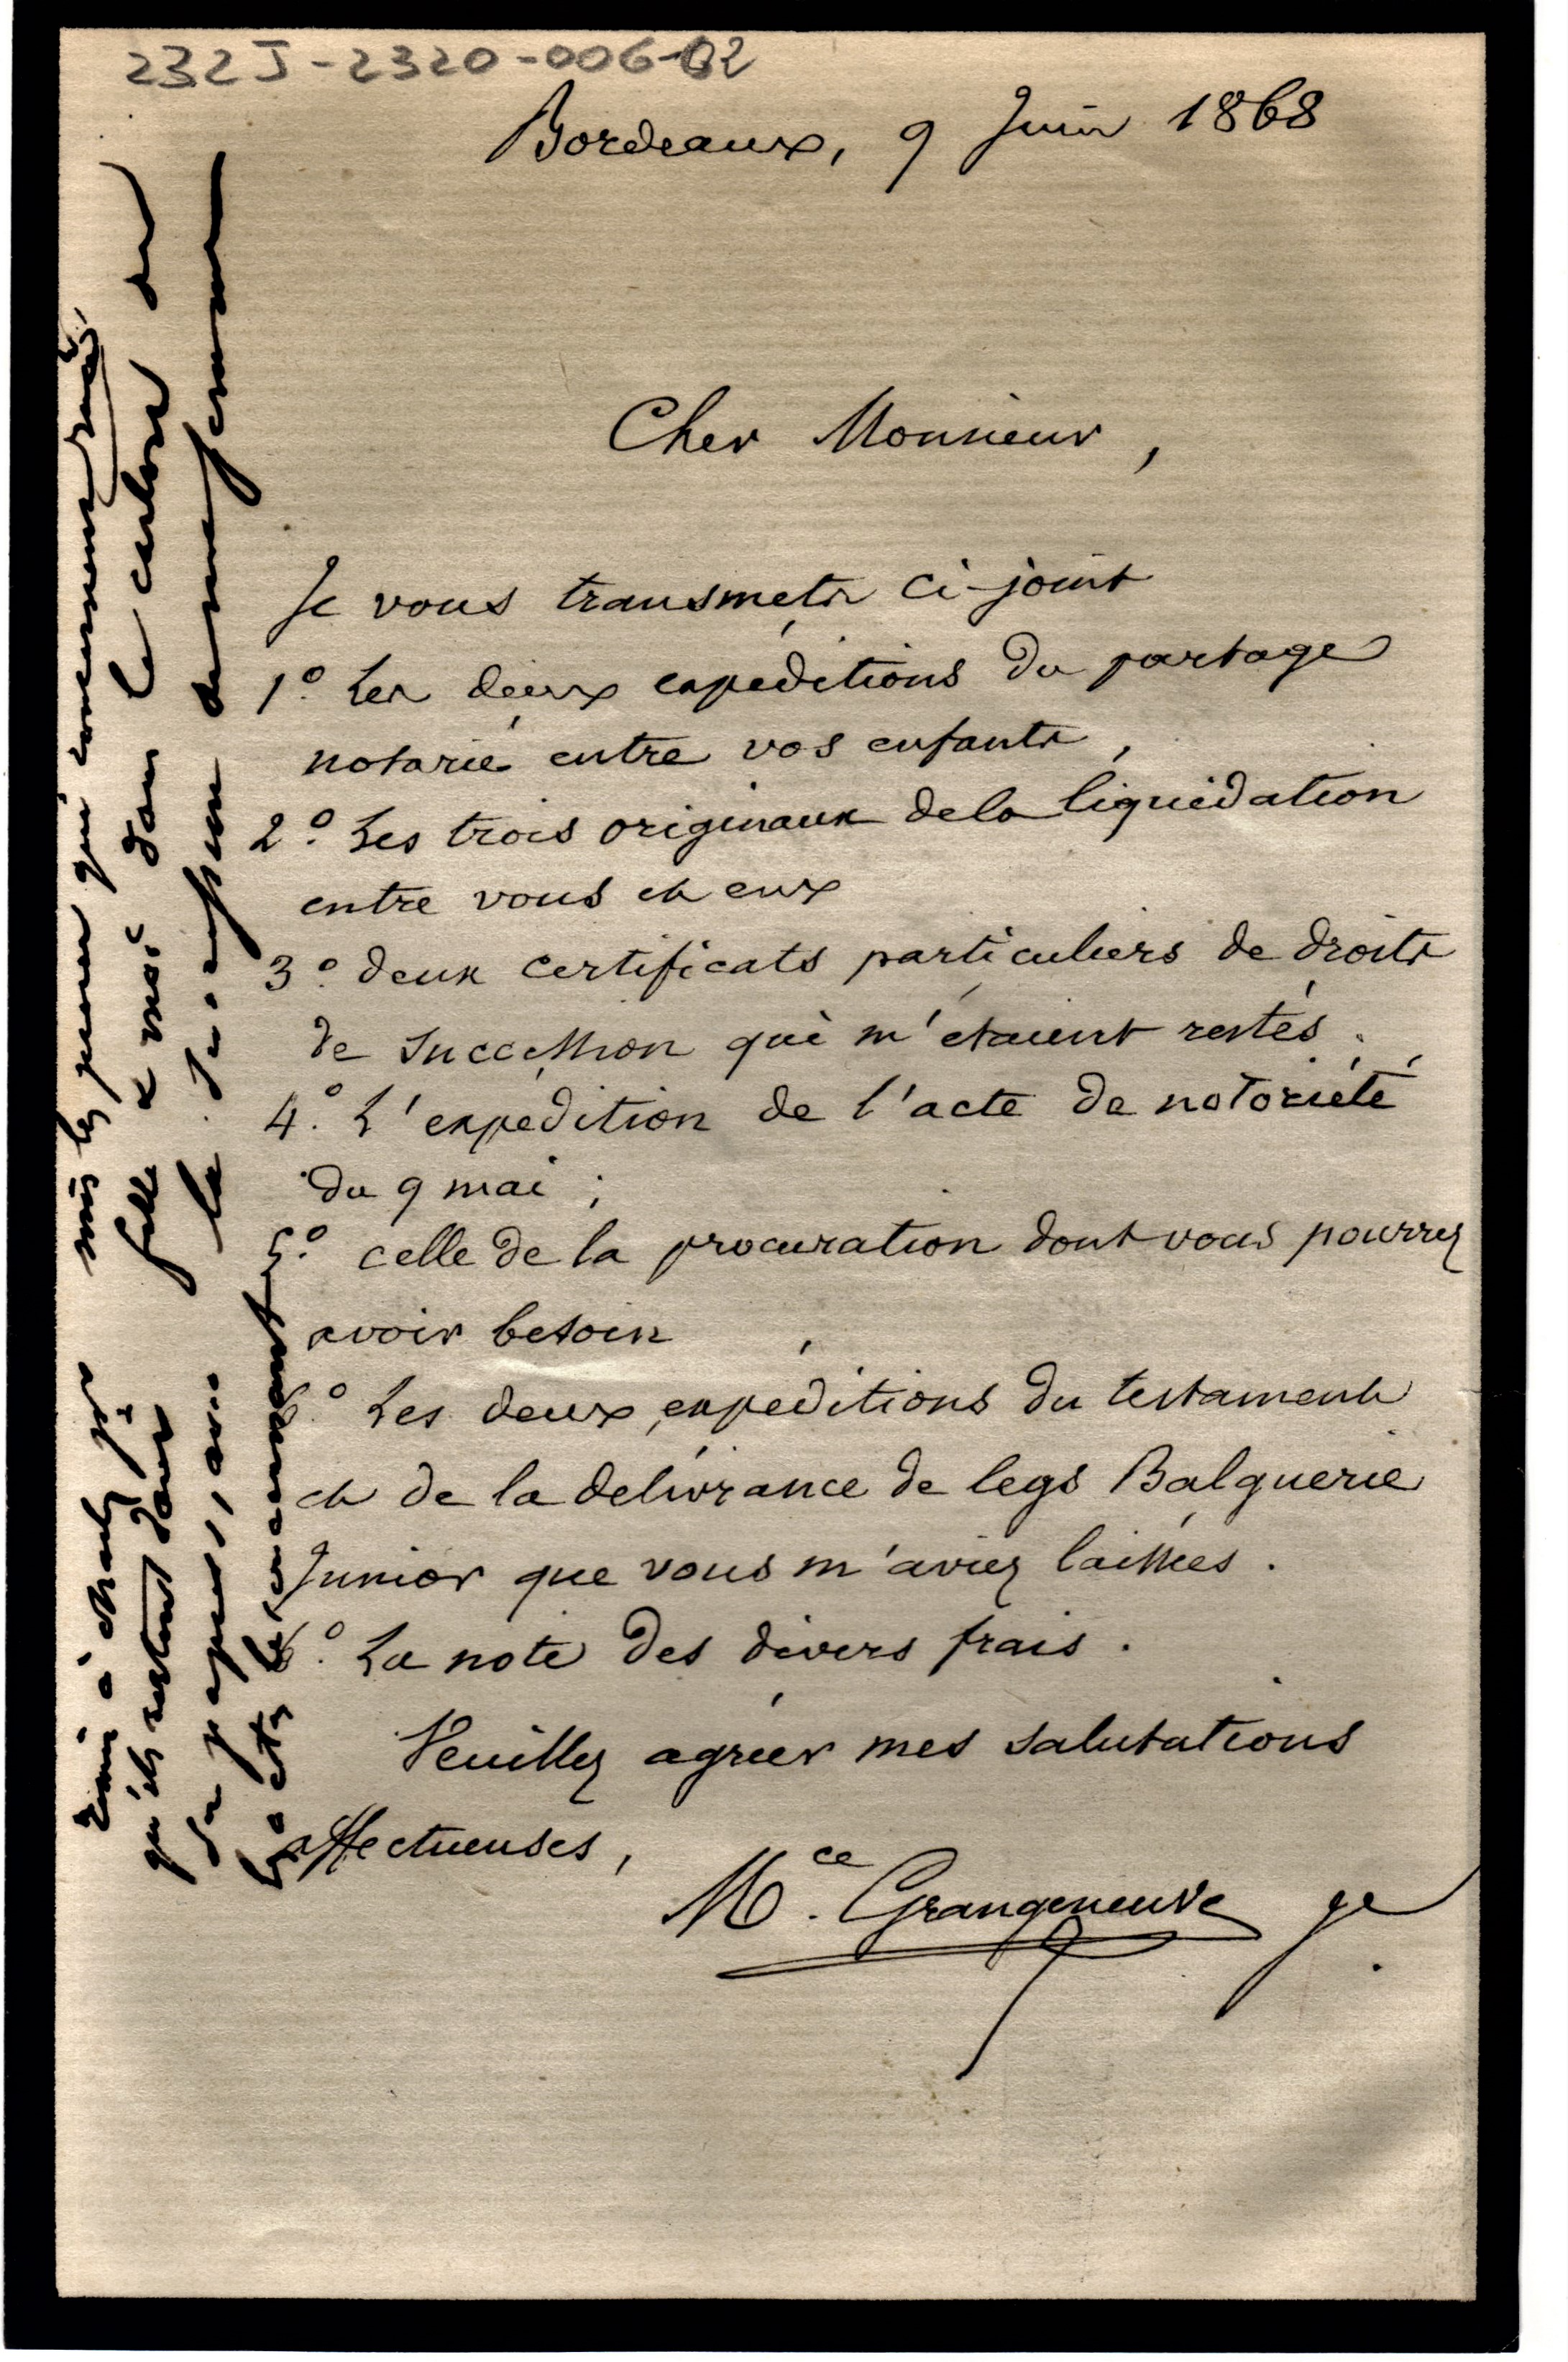 232 J - 2320 - 006-02
Bordeaux, 9 Juin 1868
Cher Monsieur,
Je vous transmets ci-joint
1º. Les deux expéditions du partage
notarié entre vos enfants,
2º. Les trois originaux de la liquidation
entre vous et eux
3º. deux certificats particuliers de droits
de succession qui m'étaient restés.
4º. L'expédition de l'acte de notoriété
du 9 mai ;
5º. celle de la procuration dont vous pourrez
avoir besoin
6º. Les deux expéditions du testament
et de la délivrance de legs Balguerie
Junior que vous m'aviez laissées.
6º. La note des divers frais.
Veuillez agréer mes salutations
affectueuses,
Mce. Grangeneuve je.
qu'ils restent dans
ses papiers, avec
les actes le concernant
mis les qui concernent
fille & moi dans le carton du
la